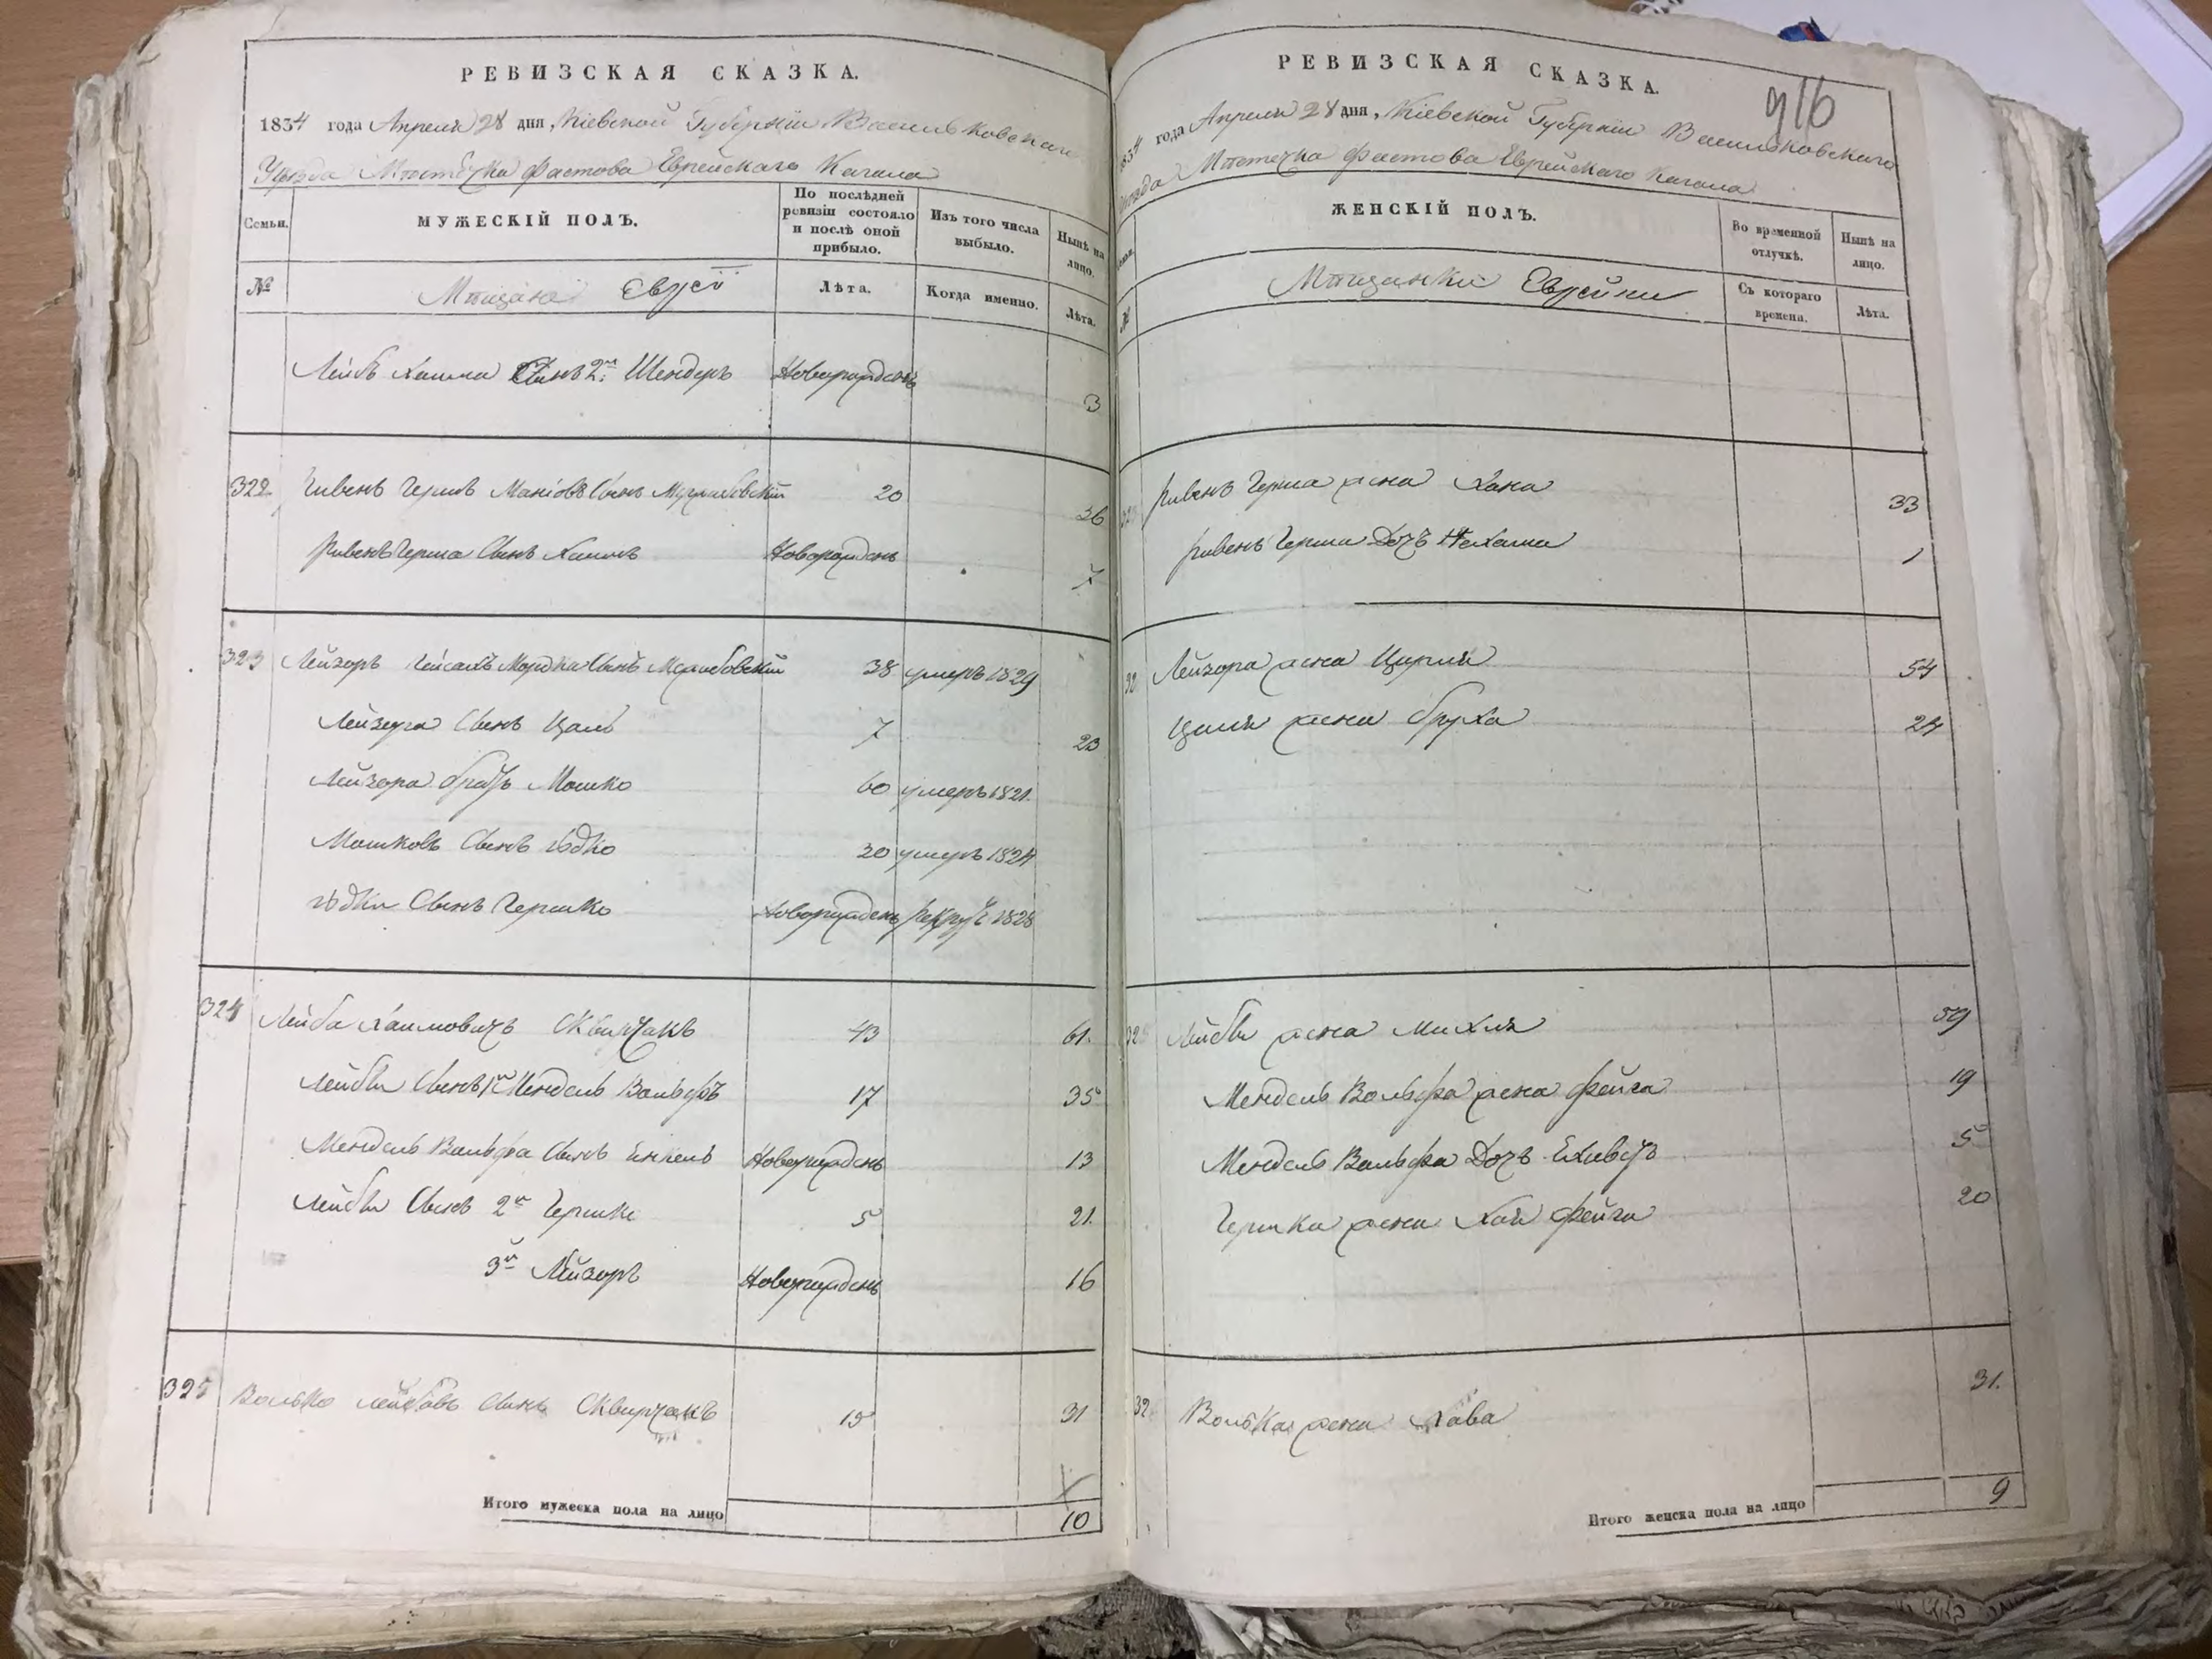 РЕВИЗСКАЯ СКАЗКА.
1834 года Апреля 28 дня, Кіевской Губерніи Васильковскаго
Уѣзда Мѣстечка Фастова Еврейскаго Кагала
Семьи.
МУЖЕСКІЙ ПОЛЪ.
По послѣдней ревизіи состояло и послѣ оной прибыло.
Изъ того числа выбыло.
Нынѣ на лицо.
№
Мѣщане Евреи
Лѣта.
Когда именно.
Лѣта.
Лейбъ Хаима Сынъ 2й Шендеръ Новорожденъ 3
322 Гершъ Маніовъ Сынъ 20 36
Ривенъ Герша Сынъ Хаимъ Новорожденъ 7
323 Лейзоръ Мордка Сынъ 38 умеръ 1829
Лейзора Сынъ Цаль 7 23
Лейзора братъ Мошко 60 умеръ 1821.
Мошковъ Сынъ 30 умеръ 1824
Сынъ Гершко Новорожденъ рекрутъ 1828
324 Лейба Хаимовичъ Сквирчакъ 43 61.
Лейбы Сынъ 1й Мендель Вольфъ 17 35
Мендель Вольфа Сынъ Новорожденъ 13
Лейбы Сынъ 2й Гершко 5 21.
3й Лейзоръ Новорожденъ 16
325 Волько Лейбовъ Сынъ Сквирчакъ 15 31
Итого мужеска пола на лицо 10
РЕВИЗСКАЯ СКАЗКА.
916
1834 года Апреля 28 дня, Кіевской Губерніи Васильковскаго
Уѣзда Мѣстечка Фастова Еврейскаго Кагала
ЖЕНСКІЙ ПОЛЪ.
Во временной отлучкѣ.
Нынѣ на лицо.
№
Мѣщанки Еврейки
Съ котораго времени.
Лѣта.
Ривенъ Герша жена Хана 33
Ривенъ Герша Дочъ Нехама 1
Лейзора жена Ципия 54
Цаля жена Бруха 24
Лейбы жена Михля 59
Мендель Вольфа жена Фейга 19
Мендель Вольфа Дочъ 5
Гершка жена Хая Фейга 20
Волька жена Хава 31.
Итого женска пола на лицо 9